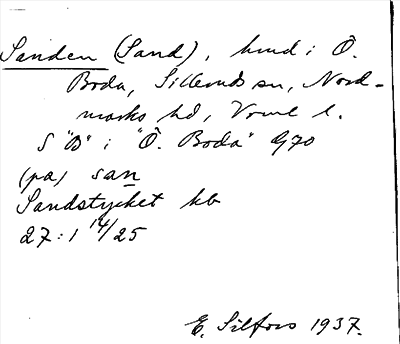 Sanden (Sand), hmd i Ö.
Boda, Sillerud sn, Nord-
marks hd, Vrml l.
S "B" i "Ö. Boda" G70
(pa) san
Sandstycket hb
27:1 14/25
E. Silfors 1937.